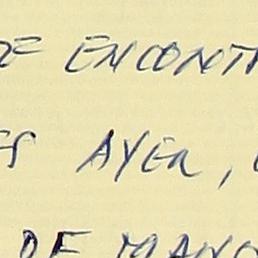 DE ENCONTR
ES AYER,
DE MANO